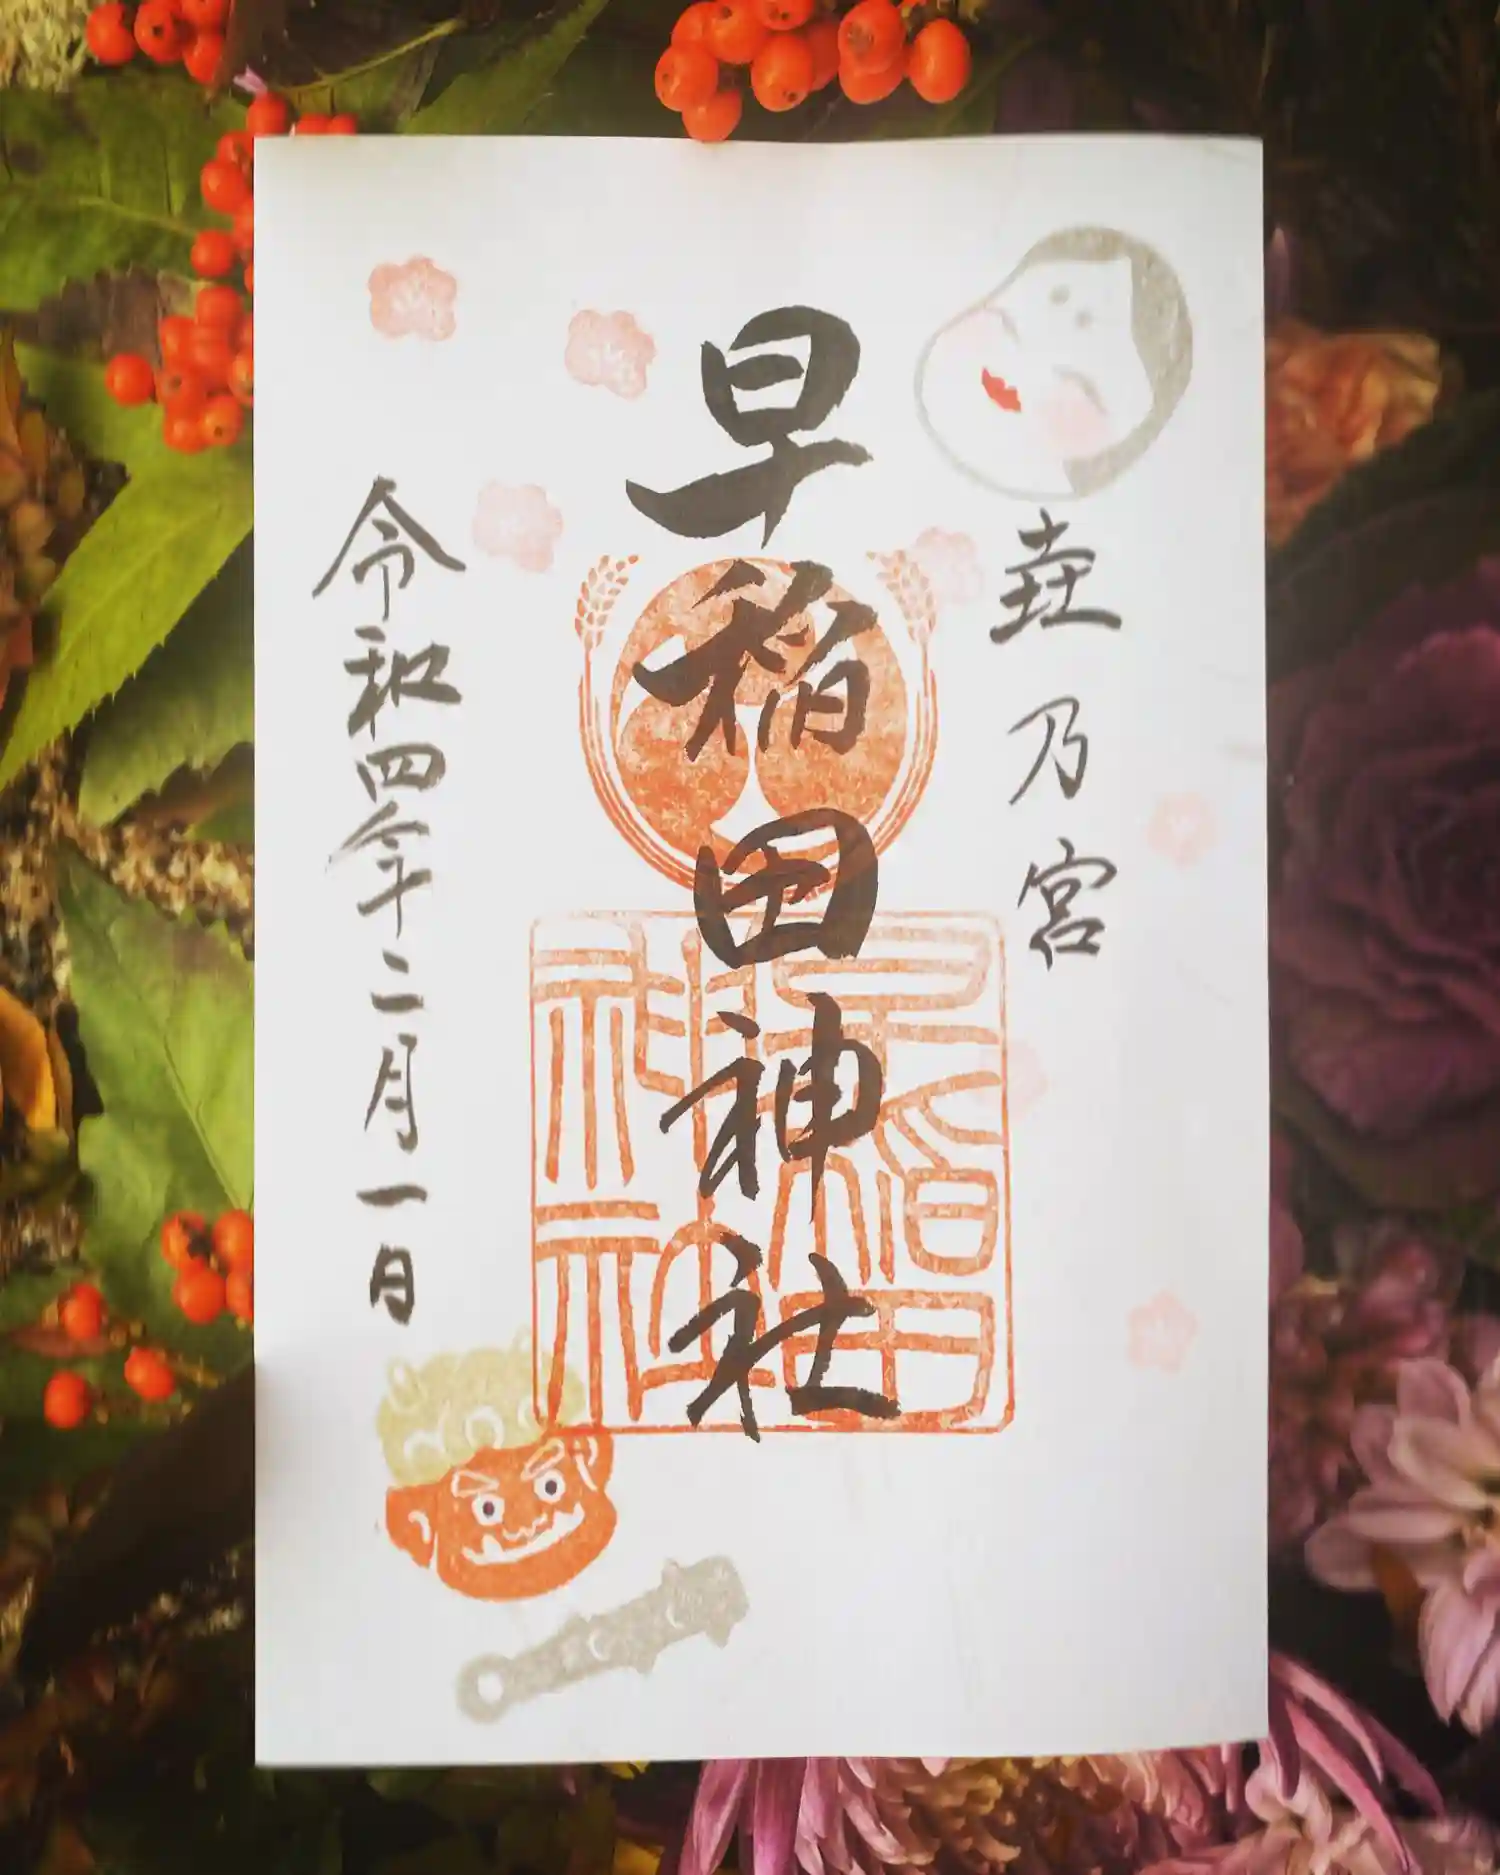 壷乃宮
早稲田神社
令和四年二月一日
早稲田
神社